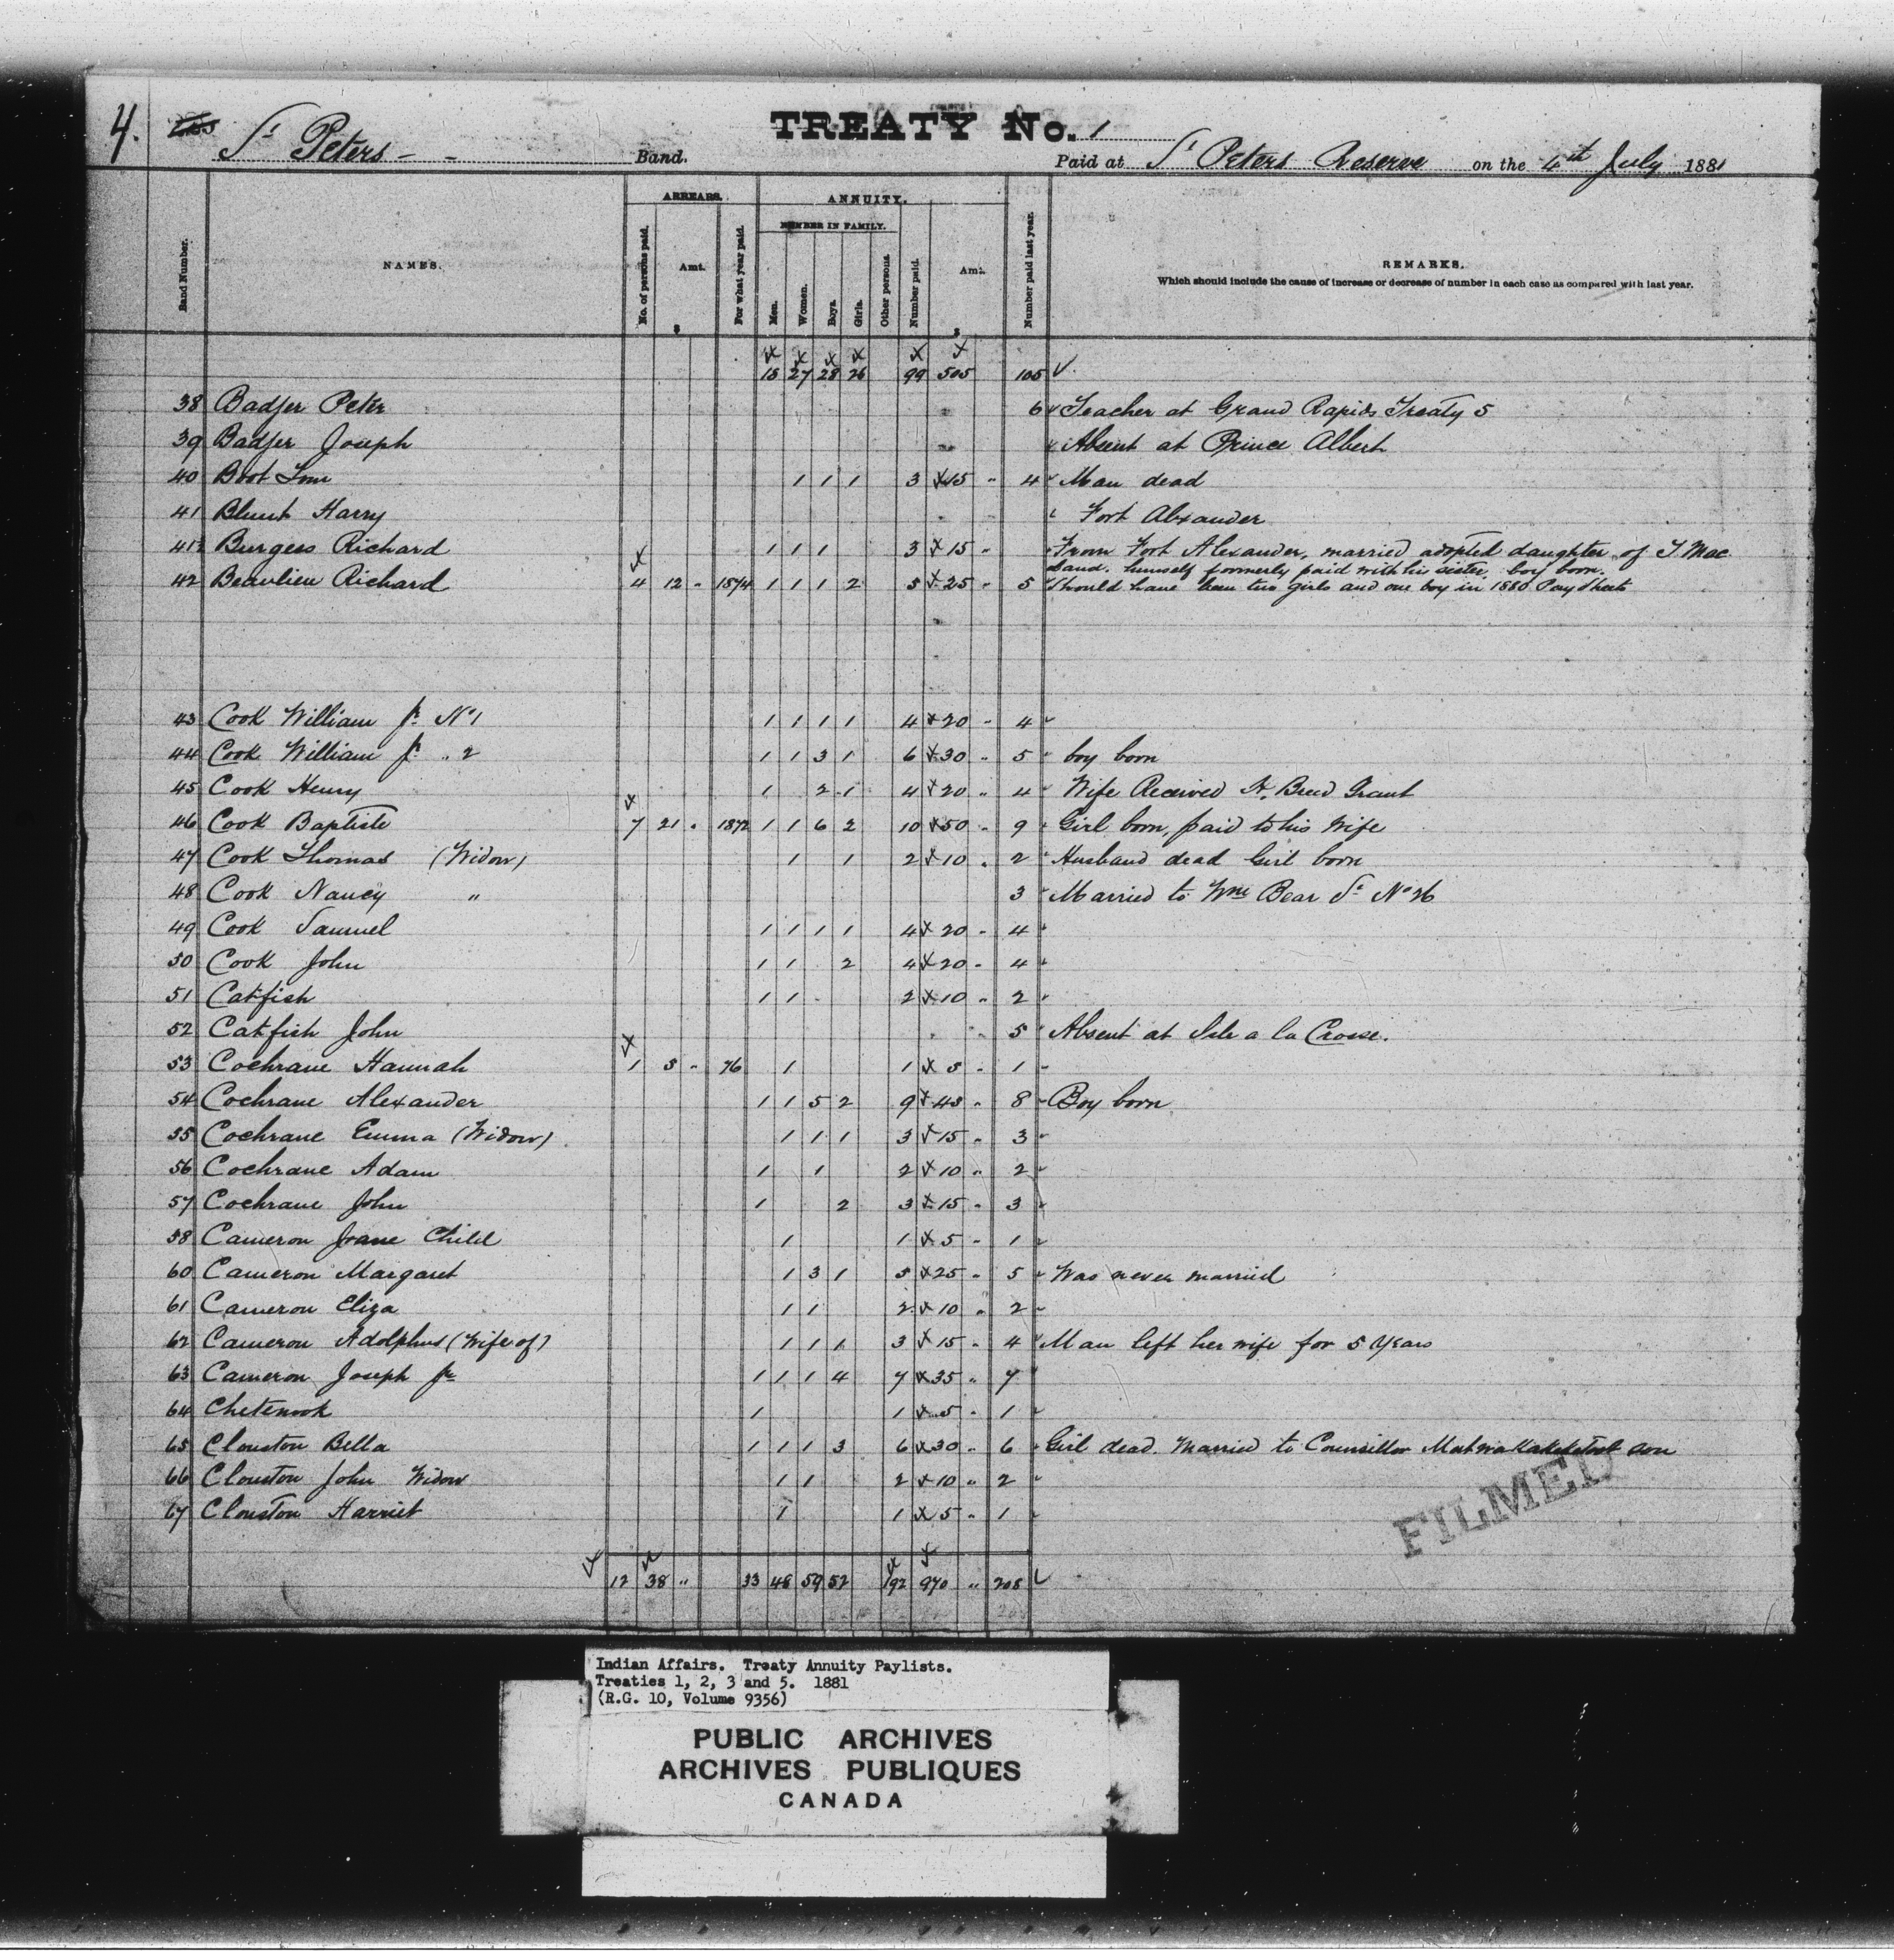 4.
St Peters - - Band.
TREATY No. 1
Paid at St Peters Reserve on the 4th July 1881
Band Number.
NAMES.
ARREARS.
No. of persons paid.
Amt.
$
For what year paid.
ANNUITY.
NUMBER IN FAMILY.
Men.
Women.
Boys.
Girls.
Other persons.
Number paid.
Amt.
$
Number paid last year.
REMARKS.
Which should include the cause of increase or decrease of number in each case as compared with last year.
15 27 28 26 99 505 105
38 Badger Peter 6 Teacher at Grand Rapids Treaty 5
39 Badger Joseph Absent at Prince Albert
40 Boot Tom 1 1 1 3 15 " 4 Man dead
41 Blunt Harry Fort Alexander
41½ Burgess Richard 1 1 1 3 15 " From Fort Alexander, married adopted daughter of T. Mac
band. himself formerly paid with his sister, boy born.
42 Beaulieu Richard 4 12 " 1874 1 1 1 2 5 25 " 5 Should have been two girls and one boy in 1880 Pay Sheets
43 Cook William Jr. No 1 1 1 1 1 4 20 " 4
44 Cook William Jr " 2 1 1 3 1 6 30 " 5 boy born
45 Cook Henry 1 2 1 4 20 " 4 Wife Received H. Breed Grant
46 Cook Baptiste 7 21 " 1872 1 1 6 2 10 50 " 9 Girl born, paid to his wife
47 Cook Thomas (Widow) 1 1 2 10 " 2 Husband dead Girl born
48 Cook Nancy " 3 Married to Wm Bear Sr No 26
49 Cook Samuel 1 1 1 1 4 20 " 4
50 Cook John 1 1 2 4 20 " 4
51 Catfish 1 1 2 10 " 2
52 Catfish John 5 Absent at Isle a la Crosse.
53 Cochrane Hannah 1 5 " 76 1 1 5 " 1
54 Cochrane Alexander 1 1 5 2 9 45 " 8 Boy born
55 Cochrane Emma (Widow) 1 1 1 3 15 " 3
56 Cochrane Adam 1 1 2 10 " 2
57 Cochrane John 1 2 3 15 " 3
58 Cameron Jane Child 1 1 5 " 1
60 Cameron Margaret 1 3 1 5 25 " 5 Was never married
61 Cameron Eliza 1 1 2 10 " 2
62 Cameron Adolphus (Wife of) 1 1 1 3 15 " 4 Man left her wife for 5 Years
63 Cameron Joseph Jr 1 1 1 4 7 35 " 7
64 Chetenook 1 1 5 " 1
65 Clouston Bella 1 1 1 3 6 30 " 6 Girl dead. Married to Councillor son
66 Clouston John Widow 1 1 2 10 " 2
67 Clouston Harriet 1 1 5 " 1
12 38 " 33 48 59 52 192 970 " 205
FILMED
Indian Affairs. Treaty Annuity Paylists.
Treaties 1, 2, 3 and 5. 1881
(R.G. 10, Volume 9356)
PUBLIC ARCHIVES
ARCHIVES PUBLIQUES
CANADA